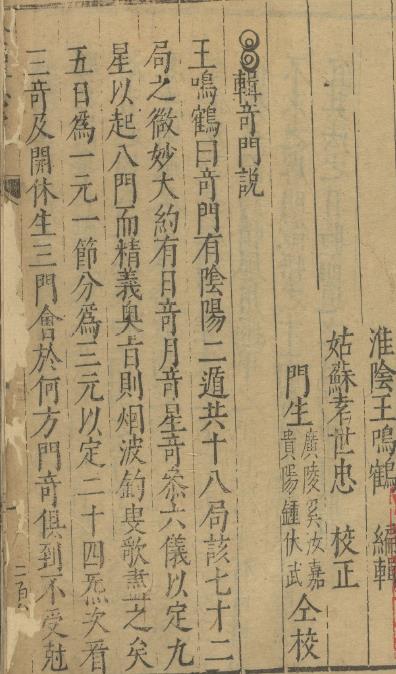 淮陰王鳴鶴　編輯
姑蘇李世忠　校正
門生
廣陵吳汝嘉
貴陽鍾伏武
仝校
◎◎輯奇門説
王鳴鶴曰奇門有陰陽二遁共十八局該七十二
局之微妙大約有日奇月奇星奇叅六儀以定九
星以起八門而精義奥旨則烟波釣叟歌盡之矣
五日為一元一節分為三元以定二十四炁次看
三奇及開休生三門會於何方門奇俱到不受尅